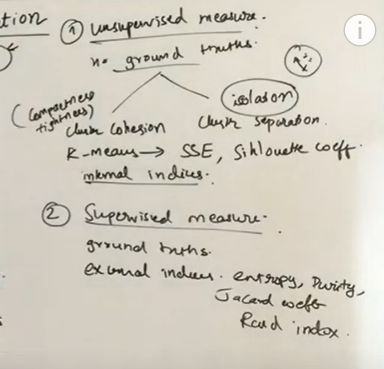 tion
① unsupervised measure.
no ground truths.
(compactness
tightness)
isolation
cluster cohesion
cluster separation.
K-means → SSE, Sihlouette coeff.
internal indices.
② Supervised measure.
ground truths.
external indices. entropy, Purity,
Jacard coeff
Rand index.